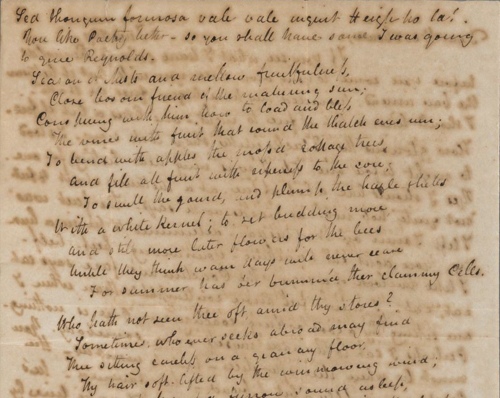 Sed thongum formosa vale vale inquit Heigh ho la!
You like Poetry better – so you shall have some I was going
to give Reynolds.
Season of Mists and mellow fruitfulness,
Close bosom friend of the maturing sun;
Conspiring with him how to load and bless
The vines with fruit that round the thatch eves run;
To bend with apples the moss'd Cottage trees
and fill all fruit with ripeness to the core;
To swell the gourd, and plump the hazle shells
With a white kernel; to set budding more
and still more later flowers for the bees
Untill they think warm days will never cease
For summer has o'er brimm'd ther clammy Cells.
Who hath not seen thee oft amid thy stores?
Sometimes, whoever seeks abroad may find
Thee sitting careless on a granary floor
Thy hair soft-lifted by the winnowing wind;
furrow sound asleep,